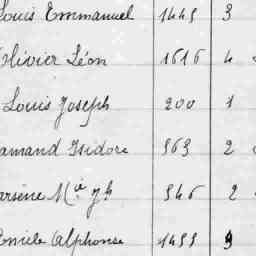 Louis Emmanuel 1449 3
Olivier Léon 1616 4
Louis Joseph 200 1
amand Isidore 563 2
arsène Mie Jh 546 2
Emile Alphonse 1499 3